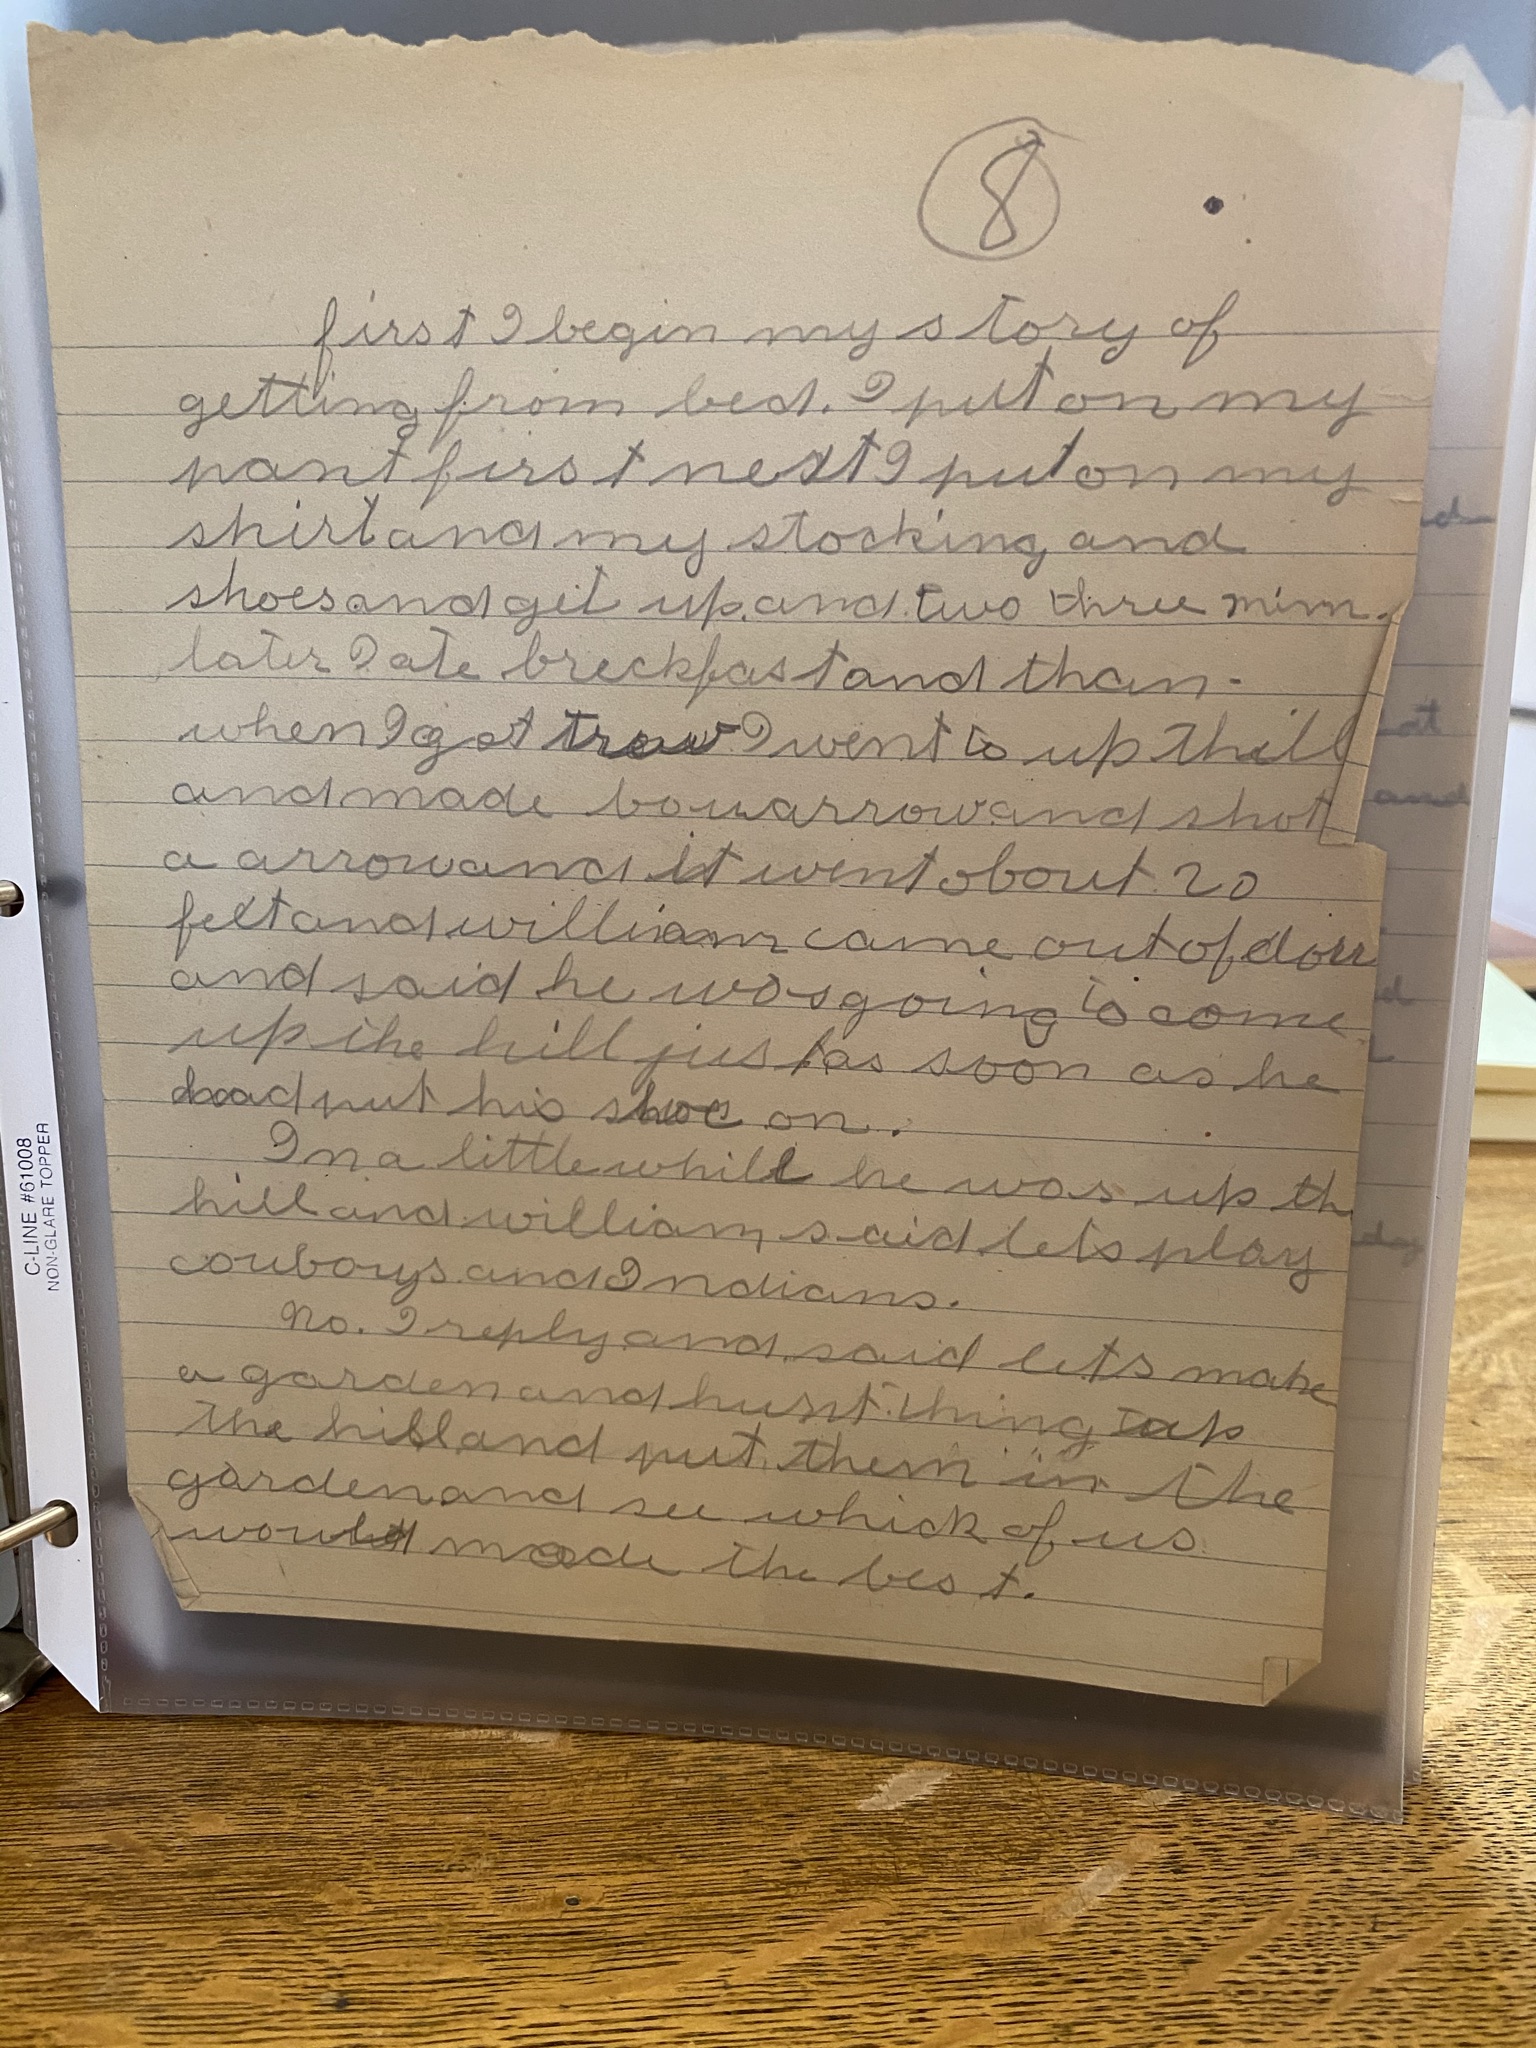 8
first I begin my story of
getting from bed. I put on my
pant first next I put on my
shirt and my stocking and
shoes and get up. and two three minn.
later I ate breckfast and than.
when I got trow I went to up thill
and made bowarrow and shot
a arrow and it went about 20
feet and william came out of dorr
and said he was going to come
up the hill just as soon as he
had put his shoe on.
In a little while he was up th
hill and william said lets play
couboys and Indians.
No. I reply and said lets make
a garden and hunt thing up
the hill and put them in the
garden and see whick of us
would made the best.
C-LINE #61008
NON-GLARE TOPPER
at
and
day